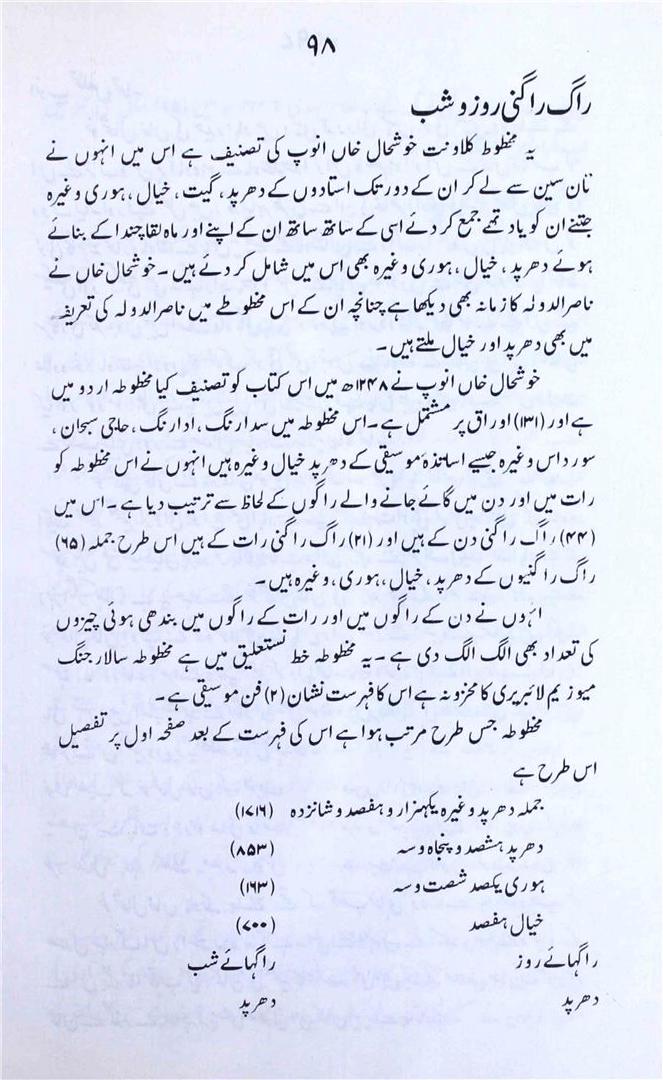 ۹۸
راگ راگنی روز و شب
یہ مخطوط کلاونت خوشحال خاں انوپ کی تصنیف ہے اس میں انہوں نے
تان سین سے لے کر ان کے دور تک استادوں کے دھرپد، گیت، خیال، ہوری وغیرہ
جتنے ان کو یاد تھے جمع کر دئے اسی کے ساتھ ساتھ ان کے اپنے اور ماہ لقا چندا کے بنائے
ہوئے دھرپد، خیال، ہوری وغیرہ بھی اس میں شامل کر دئے ہیں۔ خوشحال خاں نے
ناصر الدولہ کا زمانہ بھی دیکھا ہے چنانچہ ان کے اس مخطوطے میں ناصر الدولہ کی تعریف
میں بھی دھرپد اور خیال ملتے ہیں۔
خوشحال خاں انوپ نے ۱۲۴۸ھ میں اس کتاب کو تصنیف کیا مخطوطہ اردو میں
ہے اور (۱۳۱) اوراق پر مشتمل ہے۔ اس مخطوطہ میں سدارنگ، ادارنگ، حاجی سبحان،
سورداس وغیرہ جیسے اساتذہ موسیقی کے دھرپد خیال وغیرہ ہیں انہوں نے اس مخطوطہ کو
رات میں اور دن میں گائے جانے والے راگوں کے لحاظ سے ترتیب دیا ہے۔ اس میں
(۴۴) راگ راگنی دن کے ہیں اور (۲۱) راگ راگنی رات کے ہیں اس طرح جملہ (۶۵)
راگ راگنیوں کے دھرپد، خیال، ہوری، وغیرہ ہیں۔
انہوں نے دن کے راگوں میں اور رات کے راگوں میں بندھی ہوئی چیزوں
کی تعداد بھی الگ الگ دی ہے۔ یہ مخطوطہ خط نستعلیق میں ہے مخطوطہ سالار جنگ
میوزیم لائبریری کا مخزونہ ہے اس کا فہرست نشان (۲) فن موسیقی ہے۔
مخطوطہ جس طرح مرتب ہوا ہے اس کی فہرست کے بعد صفحہ اول پر تفصیل
اس طرح ہے
جملہ دھرپد وغیرہ یکہزار و ہفصد و شانزدہ (۱۷۱۶)
دھرپد ہشصد و پنجاہ و سہ (۸۵۳)
ہوری یکصد شصت و سہ (۱۶۳)
خیال ہفصد (۷۰۰)
راگہائے روز راگہائے شب
دھرپد دھرپد